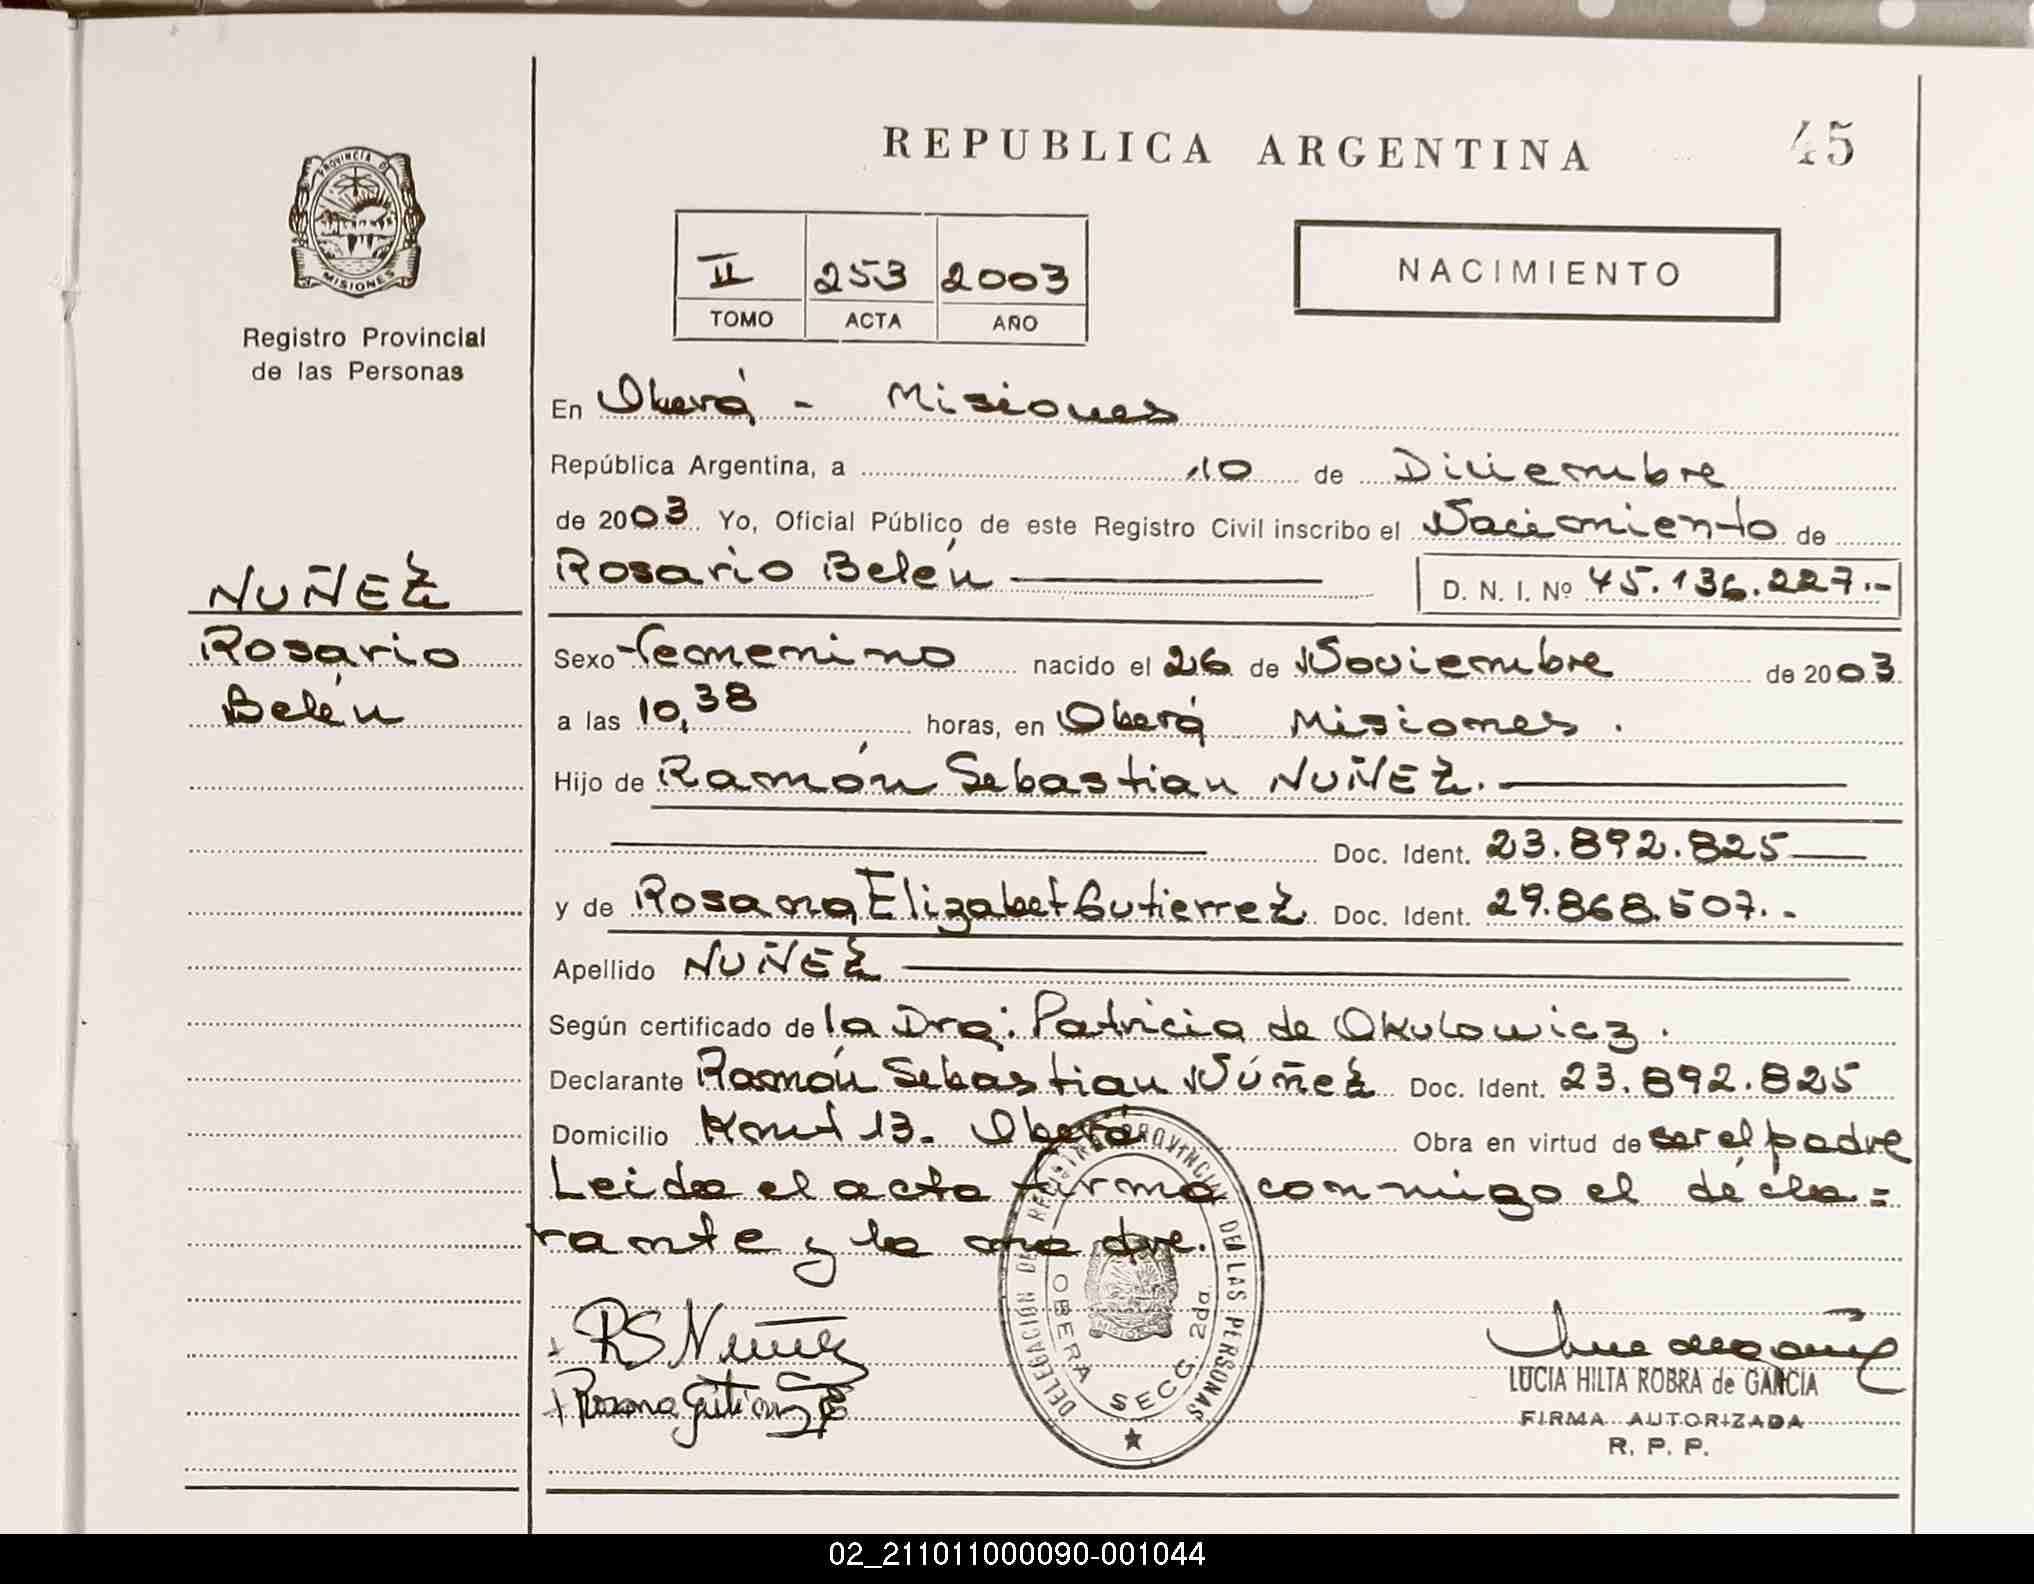 REPUBLICA ARGENTINA
45
PROVINCIA DE
MISIONES
Registro Provincial
de las Personas
II 253 2003
TOMO ACTA AÑO
NACIMIENTO
NUÑEZ
Rosario
Belén
En Oberá - Misiones
República Argentina, a 10 de Diciembre
de 2003 Yo, Oficial Público de este Registro Civil inscribo el Nacimiento de
Rosario Belén D. N. I. Nº 45.136.227.-
Sexo Femenino nacido el 26 de Noviembre de 2003
a las 10,38 horas, en Oberá Misiones.
Hijo de Ramón Sebastian NUÑEZ.
Doc. Ident. 23.892.825
y de Rosana Elizabet Gutierrez Doc. Ident. 29.868.507.-
Apellido NUÑEZ
Según certificado de la Dra: Patricia de Okulowicz.
Declarante Ramón Sebastian Núñez Doc. Ident. 23.892.825
Domicilio Kmt 13. Oberá Obra en virtud de ser el padre
Leida el acta firma conmigo el décla=
rante y la madre.
RS Nuñez
Rosana Gutierrez
DELEGACIÓN DEL REGISTRO PROVINCIAL DE LAS PERSONAS
OBERA SECC. 2da.
MISIONES
LUCIA HILTA ROBRA de GARCIA
FIRMA AUTORIZADA
R. P. P.
02_211011000090-001044